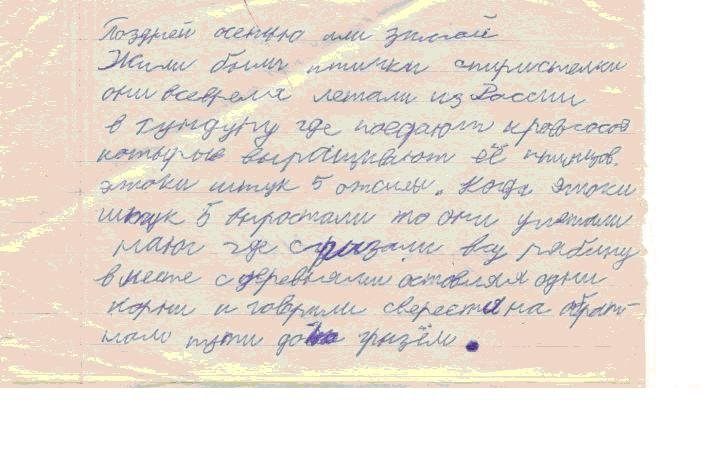 Поздней осенью или зимой
Жили были птички стиристелки
они всевремя летали из России
в тундуну где поедают кровосов
которые выращивают её птинцов.
этоки штук 5 отсилы. Когда этоки
штук 5 выростали то они улетали
где сгрызали всу рябину
вместе с деревьями оставляя одни
корни и говрили сверестя на обрат-
пути грызём.